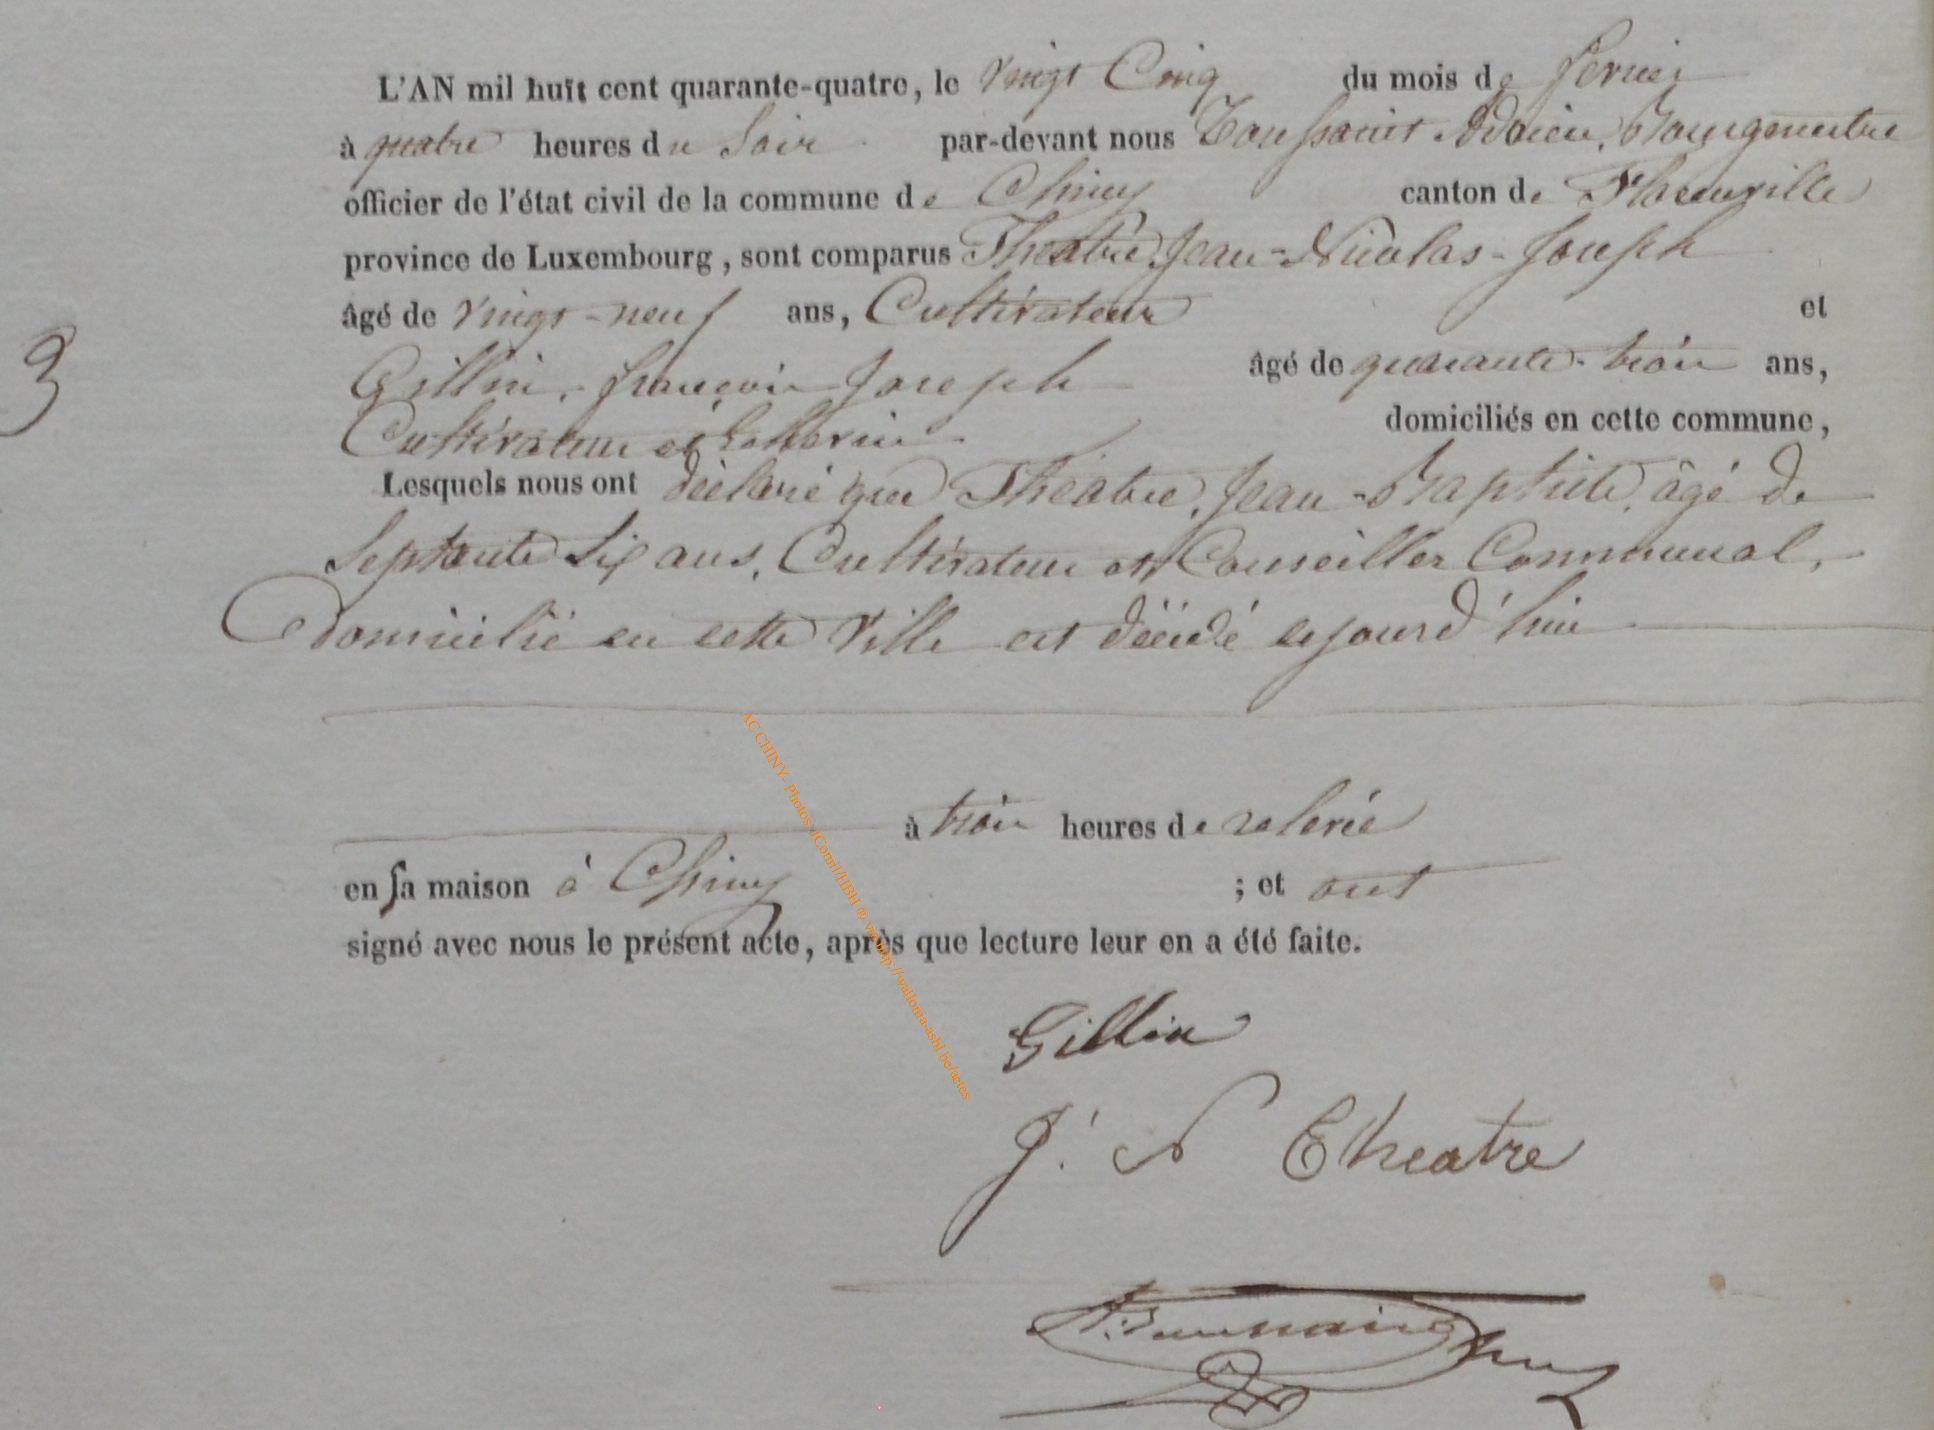 L'AN mil huit cent quarante-quatre, le vingt Cinq du mois de fevrier
à quatre heures du Soir par-devant nous Toussaint Adrien, Bourgmestre
officier de l'état civil de la commune de Chiny canton de Florenville
province de Luxembourg, sont comparus Théatre, Jean-Nicolas-Joseph
âgé de vingt-neuf ans, Cultivateur et
Gillin, françois Joseph âgé de quarante-trois ans,
3
Cultivateur et domiciliés en cette commune,
Lesquels nous ont déclaré que Théatre, Jean-Baptiste, âgé de
Septante Six ans, Cultivateur et Conseiller Communal,
Domicilié en cette Ville est décédé cejourd'hui
à trois heures de relevée
en sa maison à Chiny ; et ont
signé avec nous le présent acte, après que lecture leur en a été faite.
Gillin
J. N Theatre
A. Toussaint
AC CHINY - Photos http://wallonia-asbl.be/actes